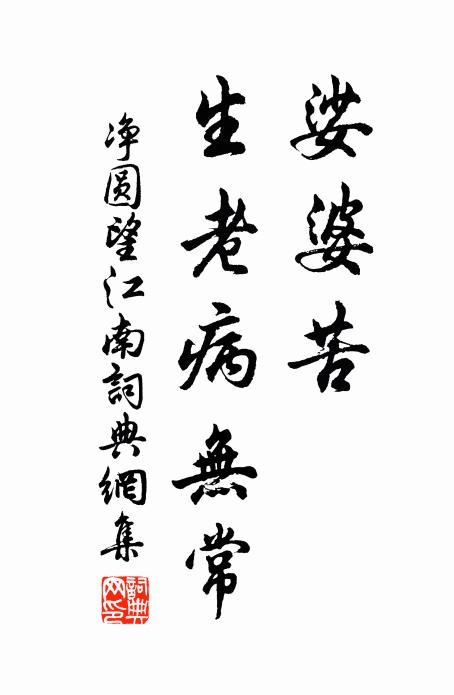 娑婆苦
生老病無常
净圆望江南詞典網集
詞典
网印